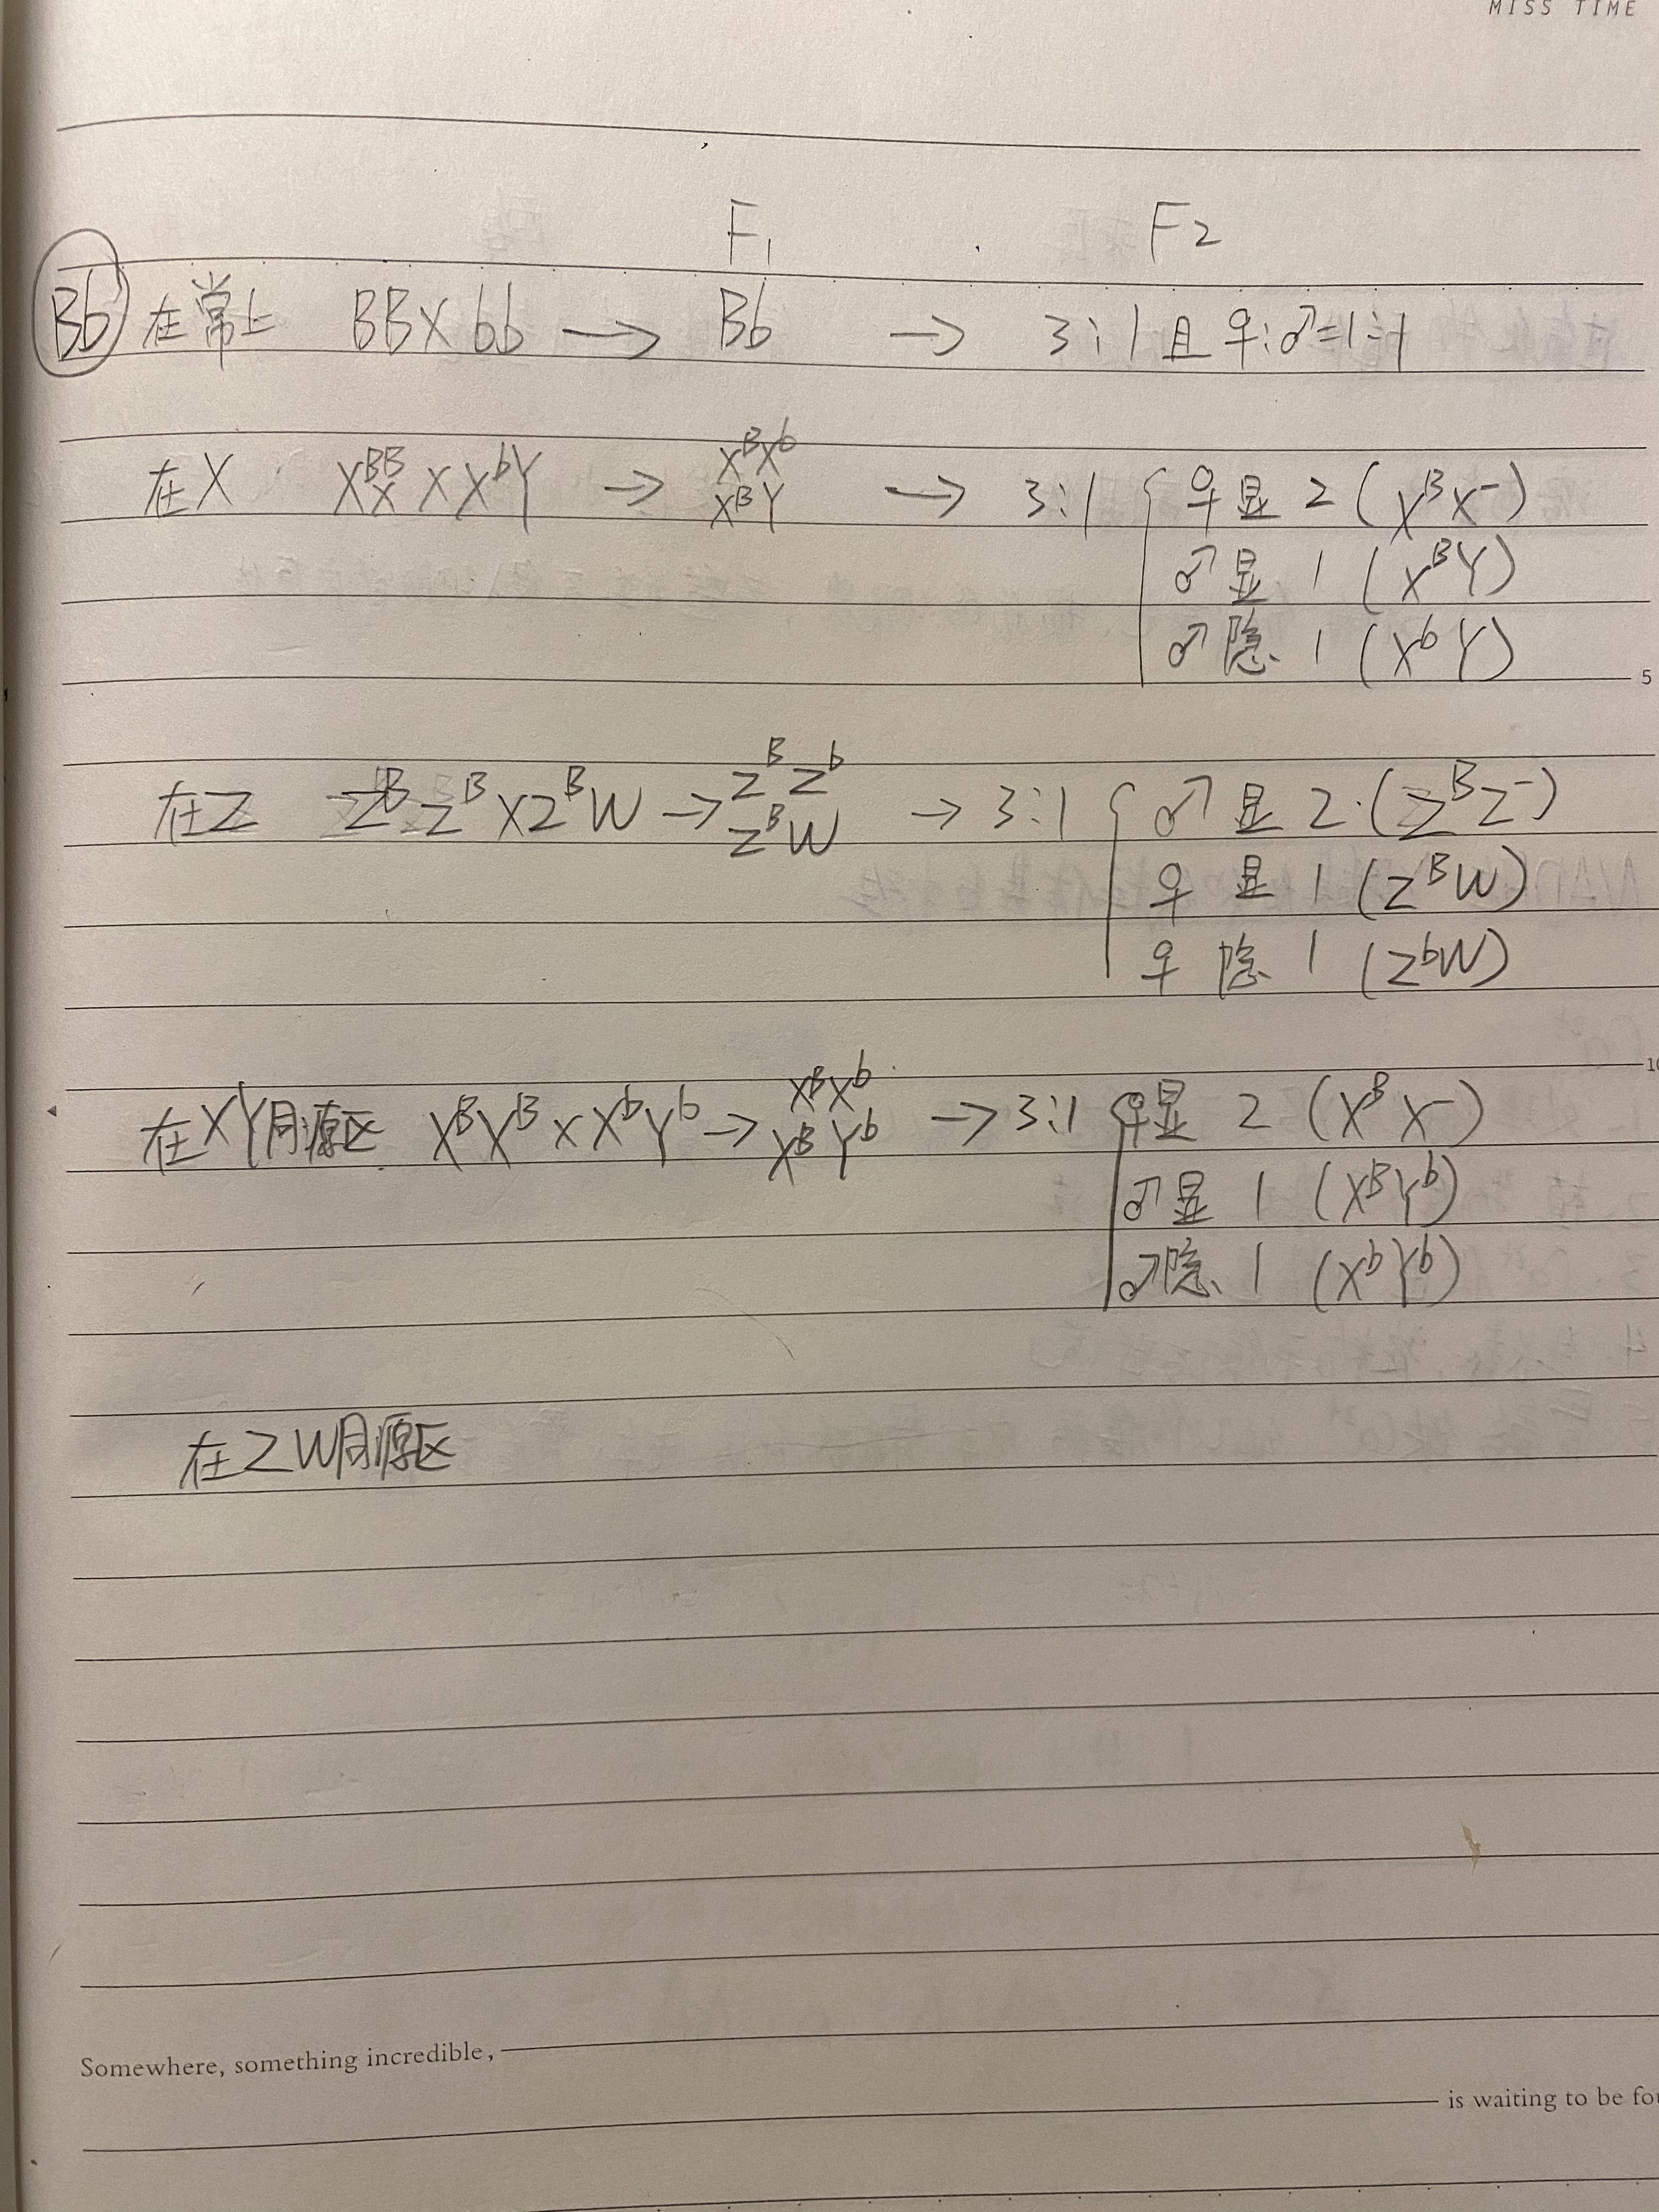 MISS TIME
F1 F2
Bb 在常上 BB×bb → Bb → 3:1 且♀:♂=1:1
在X XᴮXᴮ × XᵇY → XᴮXᵇ XᴮY → 3:1 { ♀显 2 (XᴮX-)
♂显 1 (XᴮY)
♂隐 1 (XᵇY)
5
在Z ZᴮZᴮ×ZᴮW → ZᴮZᵇ ZᴮW → 3:1 { ♂显 2 (ZᴮZ-)
♀显 1 (ZᴮW)
♀隐 1 (ZᵇW)
10
在XY同源区 XᴮXᴮ × XᵇYᵇ → XᴮXᵇ XᴮYᵇ → 3:1 { ♀显 2 (XᴮX-)
♂显 1 (XᴮYᵇ)
♂隐 1 (XᵇYᵇ)
在ZW同源区
Somewhere, something incredible, is waiting to be fou